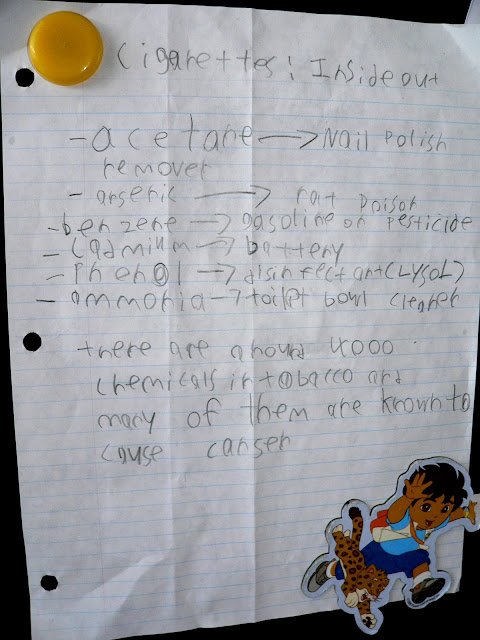 Cigarettes: Inside out
- acetane → Nail Polish
remover
- arsenic → rat Poison
- benzene → gasoline or pesticide
- Cadmium → battery
- Phenol → disinfectant (LYSOL)
- ammonia → toilet bowl cleaner
there are around 4000
chemicals in tobacco and
many of them are known to
cause canser